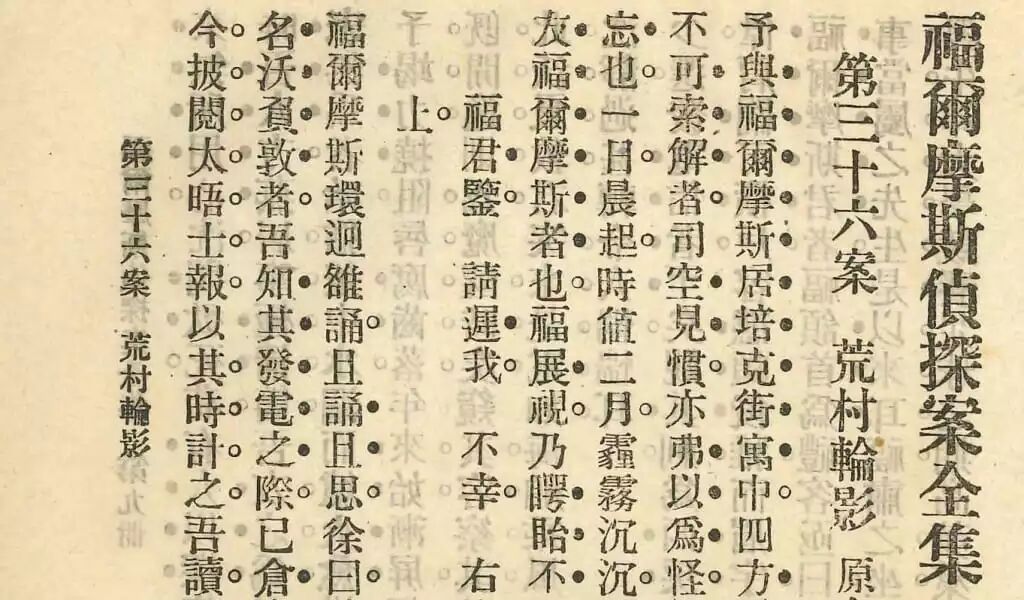 福爾摩斯偵探案全集
第三十六案　荒村輪影　原
予與福爾摩斯居培克街寓中。四方
不可索解者。司空見慣。亦弗以爲怪。
忘也。一日晨起。時値二月。霾霧沉沉。
友福爾摩斯者也。福展視。乃瞪眙不
福君鑒。請遲我。不幸。右
上。
福爾摩斯環迴雒誦。且誦且思。徐曰。
名沃賁敦者。吾知其發電之際。已倉
今披閱太晤士報。以其時計之。吾讀
第三十六案　荒村輪影